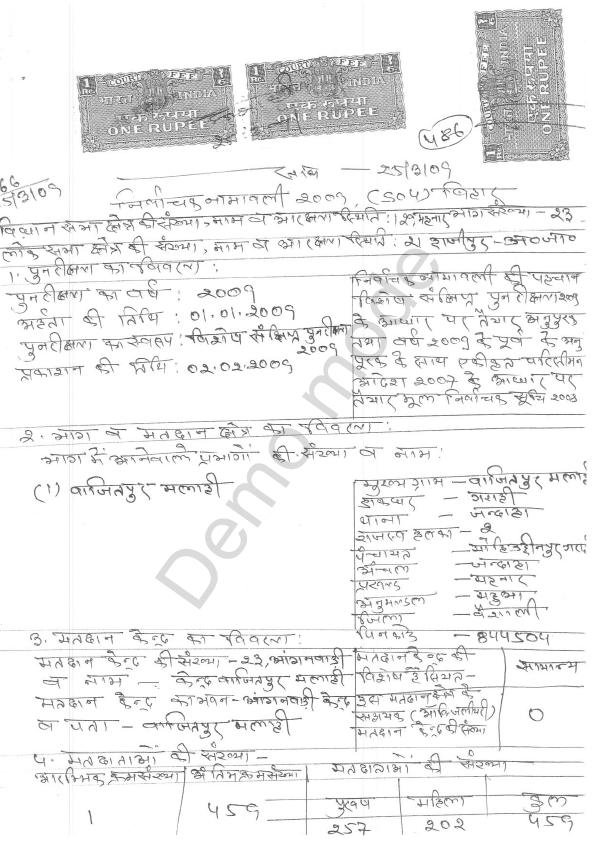 1 Rs. COURT FEE
भारत INDIA
एक रूपया
ONE RUPEE
1 Rs. COURT FEE
भारत INDIA
एक रूपया
ONE RUPEE
1 Rs. COURT FEE
भारत INDIA
एक रूपया
ONE RUPEE
25/3/09
निर्वाचक नामावली 2009, (S04) बिहार
विधान सभा क्षेत्र की संख्या, नाम व आरक्षण स्थिति : महनार भाग संख्या - 23
लोक सभा क्षेत्र की संख्या, नाम व आरक्षण स्थिति : 21 हाजीपुर - अ०जा०
1. पुनरीक्षण का विवरण :
पुनरीक्षण का वर्ष : 2009
अर्हता की तिथि : 01.01.2009
पुनरीक्षण का स्वरूप : विशेष संक्षिप्त पुनरीक्षण
2009
प्रकाशन की तिथि : 02.02.2009
निर्वाचक नामावली की पहचान
विशेष संक्षिप्त पुनरीक्षण 2009
के आधार पर तैयार अनुपुरक
तथा वर्ष 2009 के पूर्व के अनु
पूरक के साथ एकीकृत परिसीमन
आदेश 2007 के आधार पर
तैयार मूल निर्वाचक सूचि
2. भाग व मतदान क्षेत्र का विवरण :
भाग में आनेवाले प्रभागों की संख्या व नाम :
(1) वाजितपुर मलाही
मुख्य ग्राम - वाजितपुर मलाही
डाकघर - गराही
थाना - जन्दाहा
राजस्व हलका - 2
पंचायत -
अंचल - जन्दाहा
प्रखण्ड - महनार
अनुमण्डल - महुआ
जिला - वैशाली
पिनकोड - 844504
3. मतदान केन्द्र का विवरण :
मतदान केन्द्र की संख्या - 23, आंगनवाड़ी
व नाम - केन्द्र वाजितपुर मलाही
मतदान केन्द्र का भवन - आंगनवाड़ी केन्द्र
व पता - वाजितपुर मलाही
मतदान केन्द्र की
विशेष है सियत -
सामान्य
इस मतदान क्षेत्र के
सहायक (ऑक्जिलीयरी)
मतदान केन्द्र की संख्या
0
4. मतदाताओं की संख्या -
आरम्भिक क्रम संख्या अंतिम क्रम संख्या मतदाताओं की संख्या
पुरुष महिला कुल
1 459
257 202 459
Demo mode